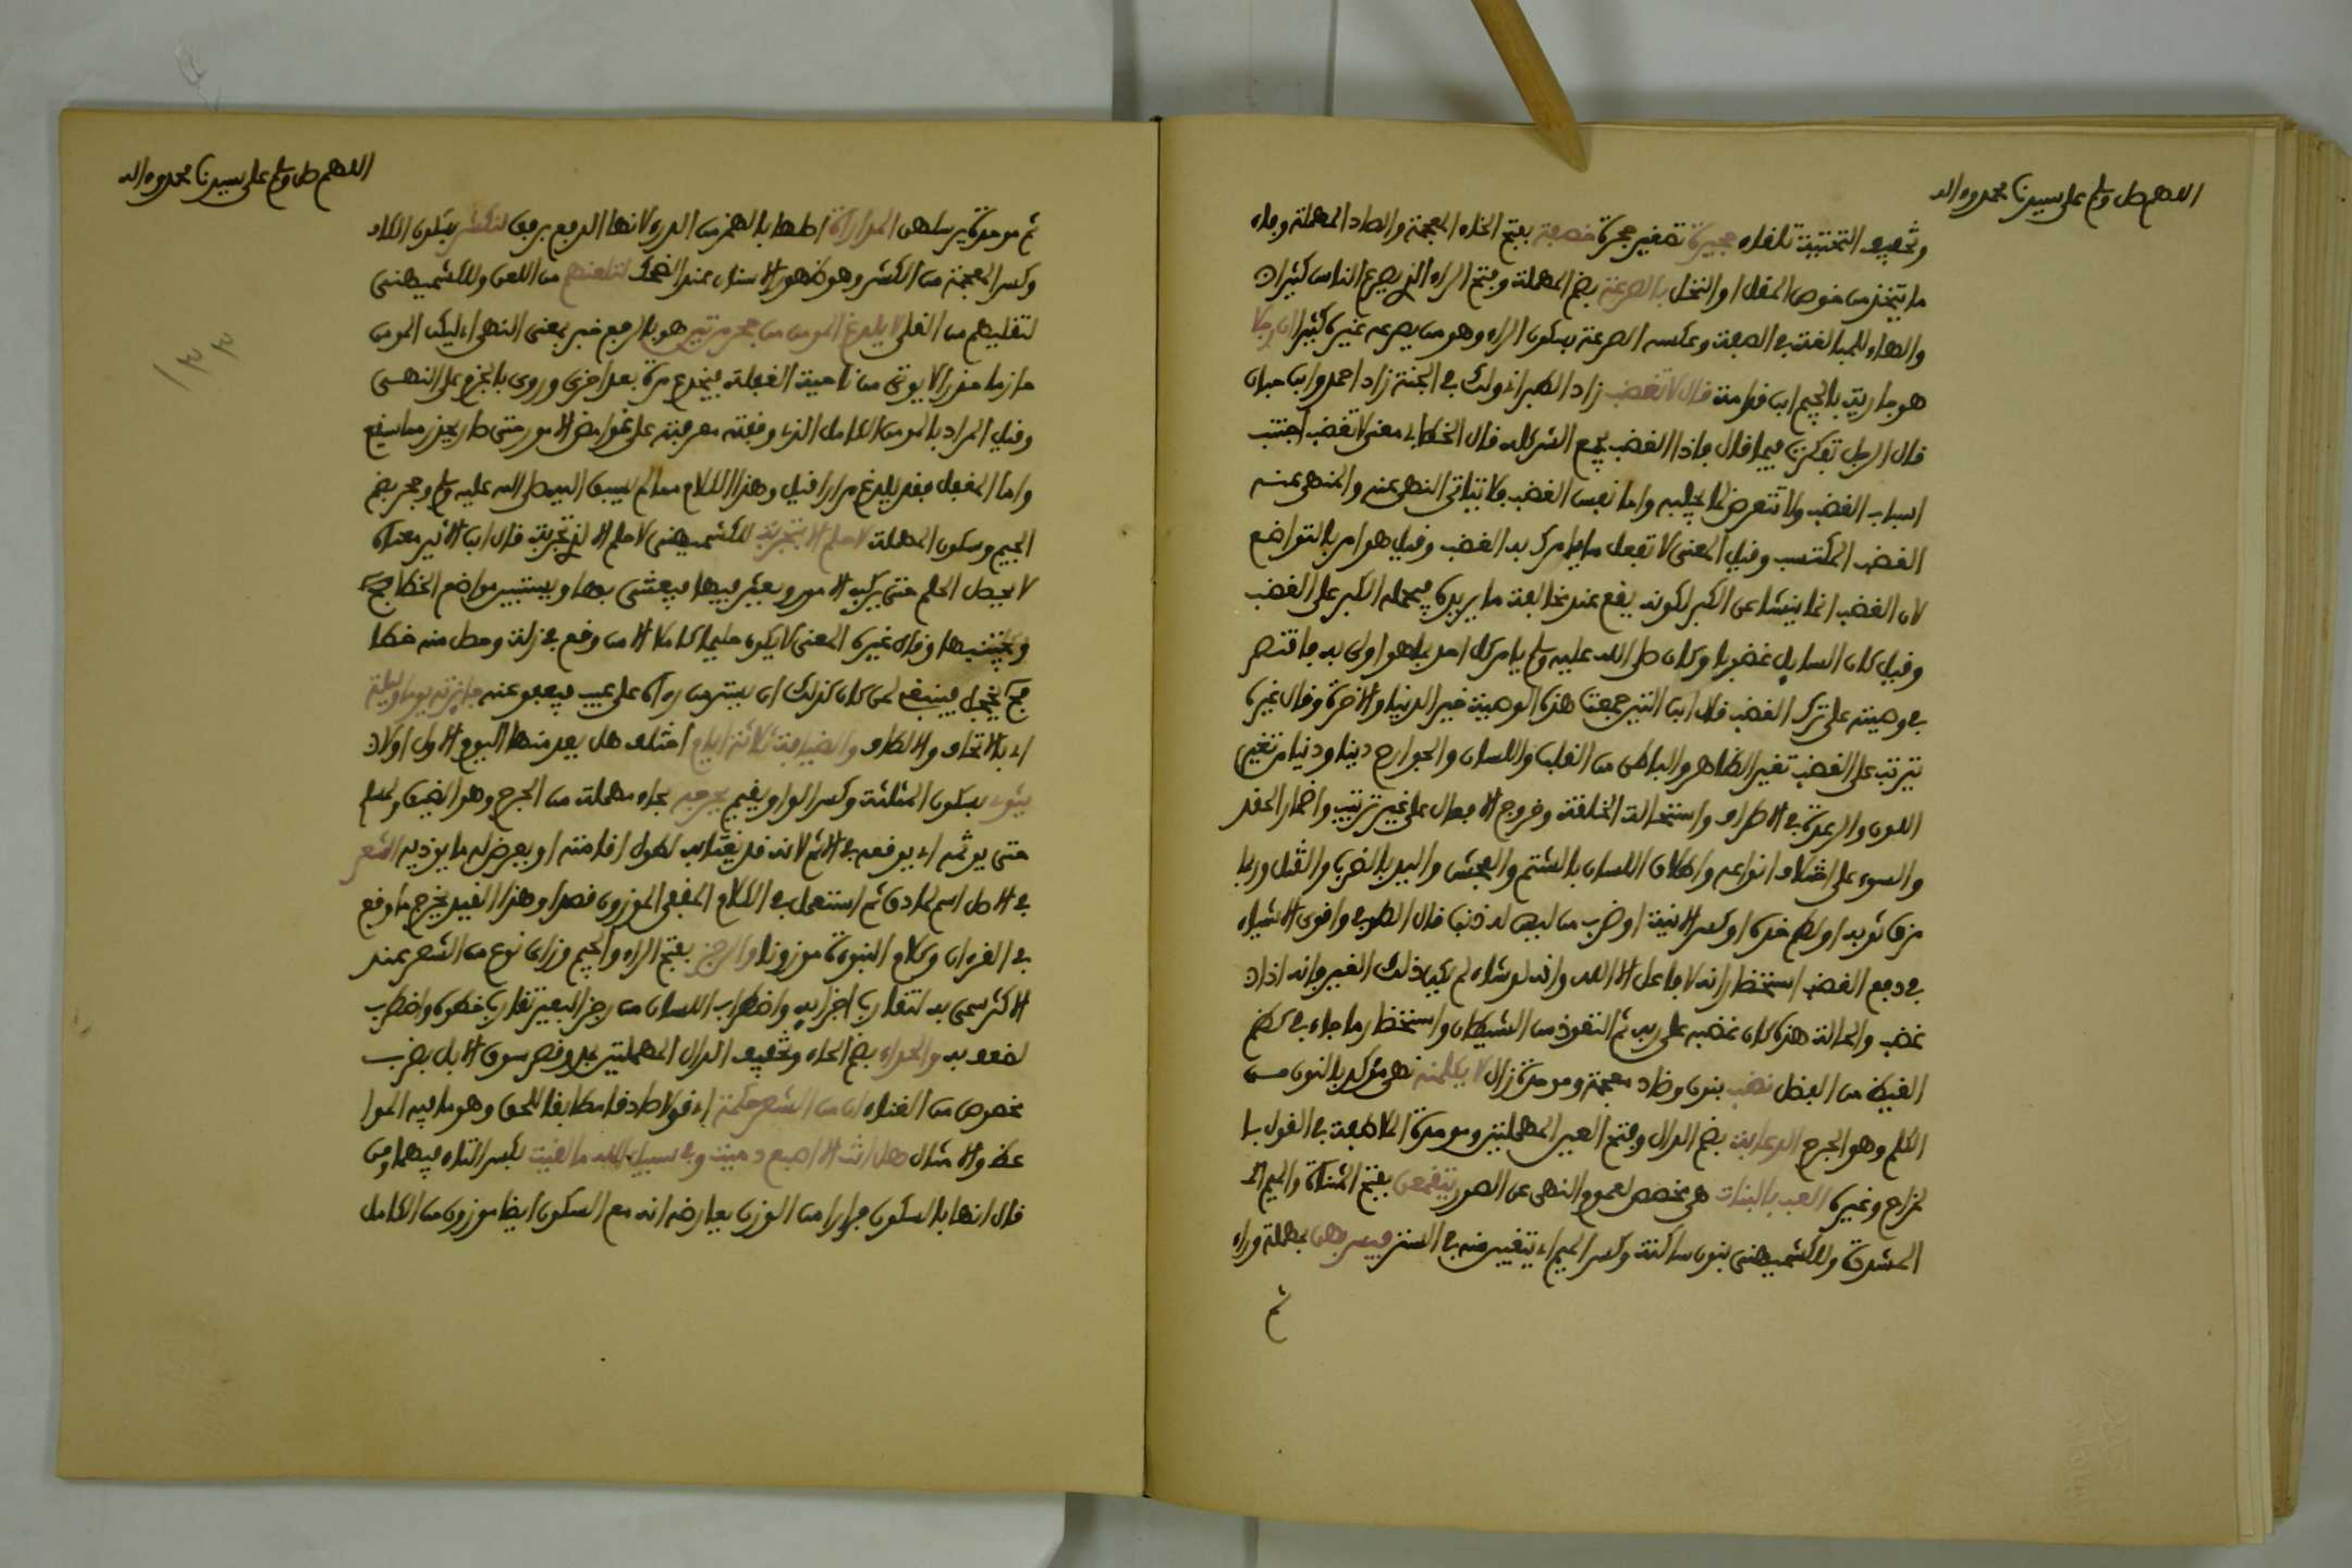 اللهم صل وسلم على سيدنا محمد وءاله
وتخفيف التحتيتة تلفاء حجيرة تصغير حجرة خصفة بفتح الخاء المعجمة والصاد المهملة وفاء
ما يتخذ من خوص المقل او النخل بالصرعة بضم المهملة وفتح الراء الذي يصرع الناس كثيرا
والهاء للمبالغة في الصفة وعكسه الصرعة بسكون الراء وهو من يصرعه غيره كثيرا ان رجلا
هو جارية بالجيم ابن قدامة قال لا تغضب زاد الطبراني ولك في الجنة زاد احمد وابن حبان
قال الرجل تفكرت فيما قال فاذا الغضب يجمع الشر كله قال الخطابي معنى لا تغضب اجتنب
اسباب الغضب ولا تتعرض لما يجلبه واما نفس الغضب فلا يتاتى النهي عنه والمنهي عنه
الغضب المكتسب وقيل المعنى لا تفعل ما يامرك به الغضب وقيل هو امر بالتواضع
لان الغضب انما ينشا عن الكبر لكونه يقع عند مخالفة ما يريده فيحمله الكبر على الغضب
وقيل كان السايل غضوبا وكان صلى الله عليه وسلم يامر كل احد بما هو اولى به فاقتصر
في وصيته على ترك الغضب قال ابن التين جمعت هذه الوصية خير الدنيا والاخرة وقال غيره
يترتب على الغضب تغير الظاهر والباطن من القلب واللسان والجوارح دينا ودنيا من تغير
اللون والرعدة في الاطراف واستحالة الخلقة وخروج الافعال على غير ترتيب واضمار الحقد
والسوء على اختلاف انواعه واطلاق اللسان بالشتم والفحش واليد بالضرب والقتل وربما
مزق ثوبه او لطم خده او كسر الانية او ضرب من ليس له ذنب قال الطوفي واقوى الاشياء
في دفع الغضب استحضار انه لا فاعل الا الله وانه لو شاء لم يكن ذلك الغير فانه اذا
غضب والحالة هذه كان غضبه على ربه ثم التعوذ من الشيطان واستحضار ما جاء في كظم
الغيظ من الفضل نضب بنون وضاد معجمة وموحدة زال لا يكلمنه نهي مؤكد بالنون من
الكلم وهو الجرح الدعابة بضم الدال وفتح العين المهملتين وموحدة الملاطفة في القول با
لمزاح وغيره العب بالبنات هو مخصص لعموم النهي عن الصور يتقمعن بفتح المثناة والميم الـ
المشددة وللكشميهني بنون ساكنة وكسر الميم اي يتغيبن منه في الستر فيسربهن بمهملة وراء
ثم
اللهم صل وسلم على سيدنا محمد وءاله
ثم موحدة يرسلهن المداراة اصلها بالهمز من الدرء لانها الدفع برفق لنكشر بسكون الكاف
وكسر المعجمة من الكشر وهو ظهور الاسنان عند الضحك لتلعنهم من اللعن وللكشميهني
لتقليهم من القلى لا يلدغ المومن من جحر مرتين هو بالرفع خبر بمعنى النهي اي ليكن المومن
حازما حذرا لا يوتى من ناحية الغفلة فيخدع مرة بعد اخرى وروي بالجزم على النهي
وقيل المراد بالمومن الكامل الذي وقفته معرفته على غوامض الامور حتى صار يحذر مما سيقع
واما المغفل فقد يلدغ مرارا قيل وهذا الكلام مما لم يسبق اليه صلى الله عليه وسلم وجحر بضم
الجيم وسكون المهملة لا حلم الا بتجربة للكشميهني لا حلم الا لذي تجربة قال ابن الاثير معناه
لا يحصل الحلم حتى يركب الامور ويعثر فيها فيعتبر بها ويستبين مواضع الخطا
ويجتنبها وقال غيره المعنى لا يكون حليما كاملا الا من وقع في زلة وحصل منه خطا
فح يخجل فينبغي لمن كان كذلك ان يستر من رءاه على عيب فيعفو عنه جايزته يوما وليلة
اي بالاتحاف والالطاف والضيافة ثلاثة ايام اختلف هل يعد منها اليوم الاول او لا
يثوي بسكون المثلثة وكسر الواو يقيم يحرجه بحاء مهملة من الحرج وهو الضيق ولمسلم
حتى يوثمه اي يوقعه في الاثم لانه قد يغتابه لطول اقامته او يعرض له ما يوذيه الشعر
في الاصل اسم لما دق ثم استعمل في الكلام المقفى الموزون قصدا وهذا القيد يخرج ما وقع
في القرءان وكلام النبوة موزونا والرجز بفتح الراء والجيم وزاى نوع من الشعر عند
الاكثر سمي به لتقارب اجزايه واضطراب اللسان من رجز البعير تقارب خطوه واضطرب
لضعف به والحداء بضم الحاء وتخفيف الدال المهملتين يمد ويقصر سوق الابل بضرب
مخصوص من الغناء ان من الشعر حكمة اي قولا صادقا مطابقا للحق وهو ما فيه الموا
عظ والامثال هل انت الا اصبع دميت وفي سبيل الله ما لقيت بكسر التاء فيهما ومن
قال انها بالسكون فرارا من الوزن يعارضه انه مع السكون ايضا موزون من الكامل